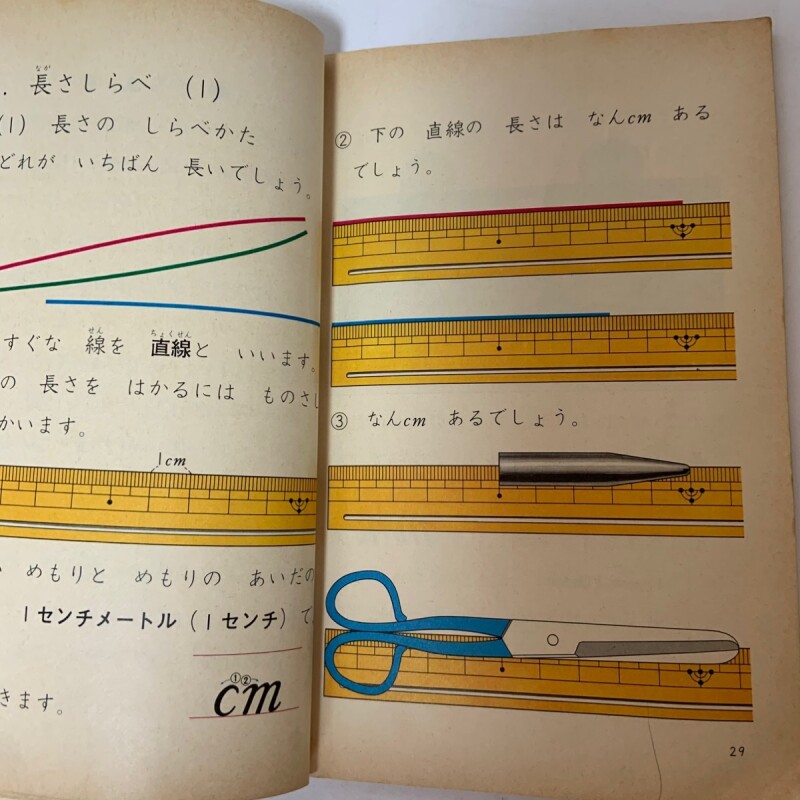 長さしらべ (1)
なが
(1) 長さの しらべかた
どれが いちばん 長いでしょう。
すぐな 線を 直線と いいます。
せん ちょくせん
の 長さを はかるには ものさし
かいます。
1cm
めもりと めもりの あいだの
1センチメートル(1センチ)で
①②
cm
きます。
② 下の 直線の 長さは なんcm ある
でしょう。
③ なんcm あるでしょう。
29